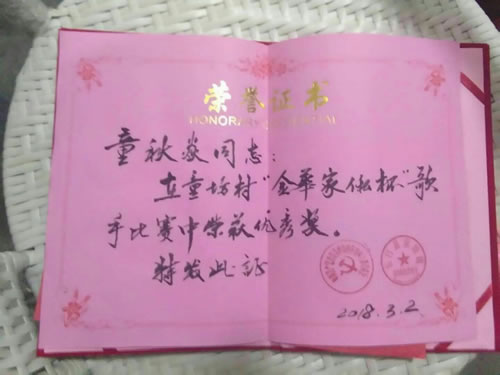 荣誉证书
童秋燚同志：
在童坊村"金华家俬杯"歌
手比赛中荣获优秀奖。
特发此证
2018.3.2